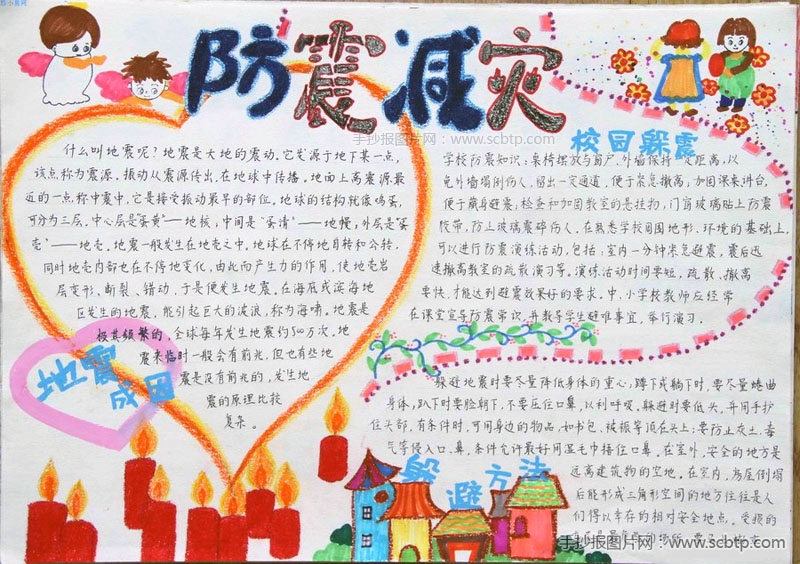 防震减灾
手抄报图片网：www.scbtp.com
什么叫地震呢？地震是大地的震动。它发源于地下某一点，
该点称为震源。振动从震源传出，在地球中传播。地面上离震源最
近的一点称中震中，它是接受振动最早的部位。地球的结构就像鸡蛋，
可分为三层。中心层是“蛋黄”——地核；中间是“蛋清”——地幔；外层是“蛋
壳”——地壳。地震一般发生在地壳之中，地球在不停地自转和公转，
同时地壳内部也在不停地变化，由此而产生力的作用，使地壳岩
层变形、断裂、错动，于是便发生地震。在海底或滨海地
区发生的地震，能引起巨大的波浪，称为海啸。地震是
极其频繁的，全球每年发生地震约500万次。地
震来临时一般会有前兆，但也有些地
震是没有前兆的，发生地
震的原理比较
复杂。
地震
成因
校园躲震
学校防震知识：桌椅摆放与窗户、外墙保持一定距离，以
免外墙塌倒伤人，留出一定通道，便于紧急撤离；加固课桌讲台，
便于藏身避震；检查和加固教室的悬挂物，门窗玻璃贴上防震
胶带，防止玻璃震碎伤人。在熟悉学校园地形、环境的基础上，
可以进行防震演练活动，包括：室内一分钟紧急避震，震后迅
速撤离教室的疏散演习等。演练活动时间要短，疏散、撤离
要快，才能达到避震效果好的要求。中、小学校教师应经常
在课堂宣导防震常识，并教导学生避难事宜，举行演习。
躲避地震时要尽量降低身体的重心，蹲下或躺下时，要尽量蜷曲
身体，趴下时要脸朝下，不要压住口鼻，以利呼吸。躲避时要低头，并间手护
住头部，有条件时，可间身边的物品，如书包、被振等顶在头上；要防止灰土、毒
气等侵入口、鼻，条件允许最好间湿毛巾捂住口鼻。在室外，安全的地方是
远离建筑物的空地。在室内，房屋倒塌
后能形成三角形空间的地方往往是人
们得以幸存的相对安全地点。
躲避方法
手抄报图片网：www.scbtp.com